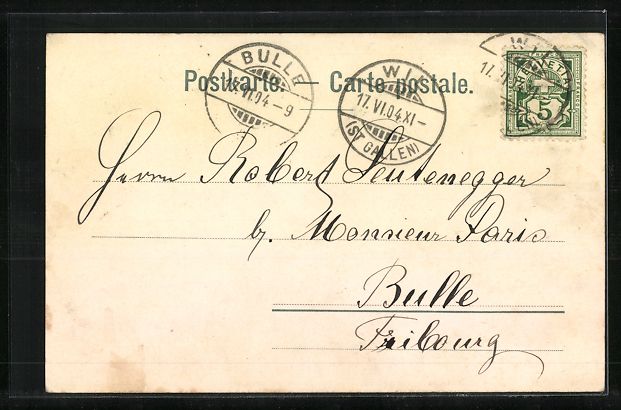 Postkarte. — Carte postale.
BULLE
VI.04 – 9
WIL
17.VI.04 XI –
(ST GALLEN)
HELVETIA
5
Herrn Robert Leutenegger
b. Monsieur Paris
Bulle
Fribourg